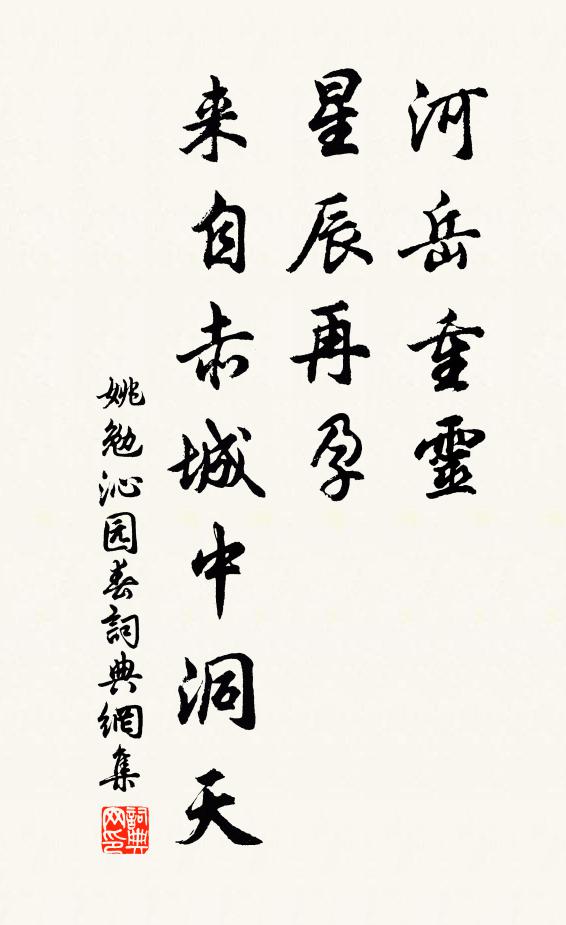 河岳重靈
星辰再孕
来自赤城中洞天
姚勉沁园春詞典網集
詞典网印